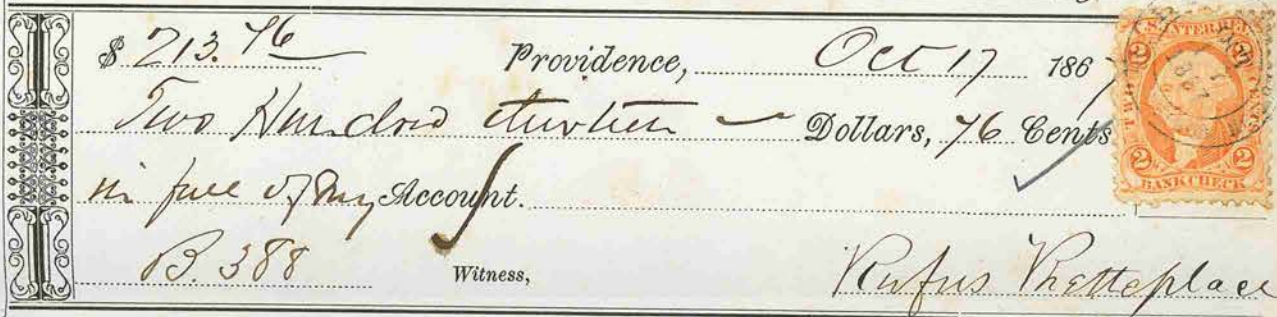 $ 213.76 Providence, Oct 17 186
Two Hundred thirteen — Dollars, 76 Cents
in full of my Account.
B. 388 Witness, Rufus
U.S. INTER. REV.
TWO CENTS
2 2
2 2
BANK CHECK